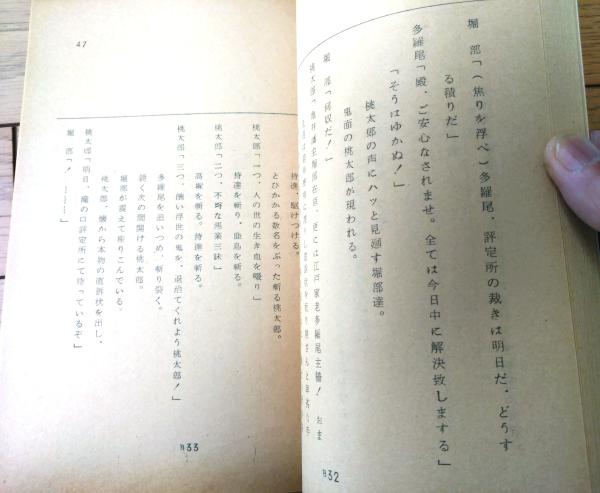 堀　部「（焦りを浮べ）多羅尾、評定所の裁きは明日だ。どうす
る積りだ」
多羅尾「殿、ご安心なされませ。全ては今日中に解決致しまする」
「そうはゆかぬ！」
桃太郎の声にハッと見廻す堀部達。
鬼面の桃太郎が現われる。
堀　部「何奴だ！」
桃太郎「
B32
侍達、駆けつける。
とびかかる数名をぶった斬る桃太郎。
桃太郎「一つ、人の世の生き血を啜り」
侍達を斬り、鹿島を斬る。
桃太郎「二つ、不埒な悪業三昧」
高塚を斬る。侍達を斬る。
桃太郎「三つ、醜い浮世の鬼を、退治てくれよう桃太郎！」
多羅尾を追いつめ、斬り裂く。
続く次の間開ける桃太郎。
堀部が震えて座りこんでいる。
桃太郎、懐から本物の直訴状を出し、
桃太郎「明日、滝の口評定所にて待っているぞ」
堀　部「！　………」
B33
47